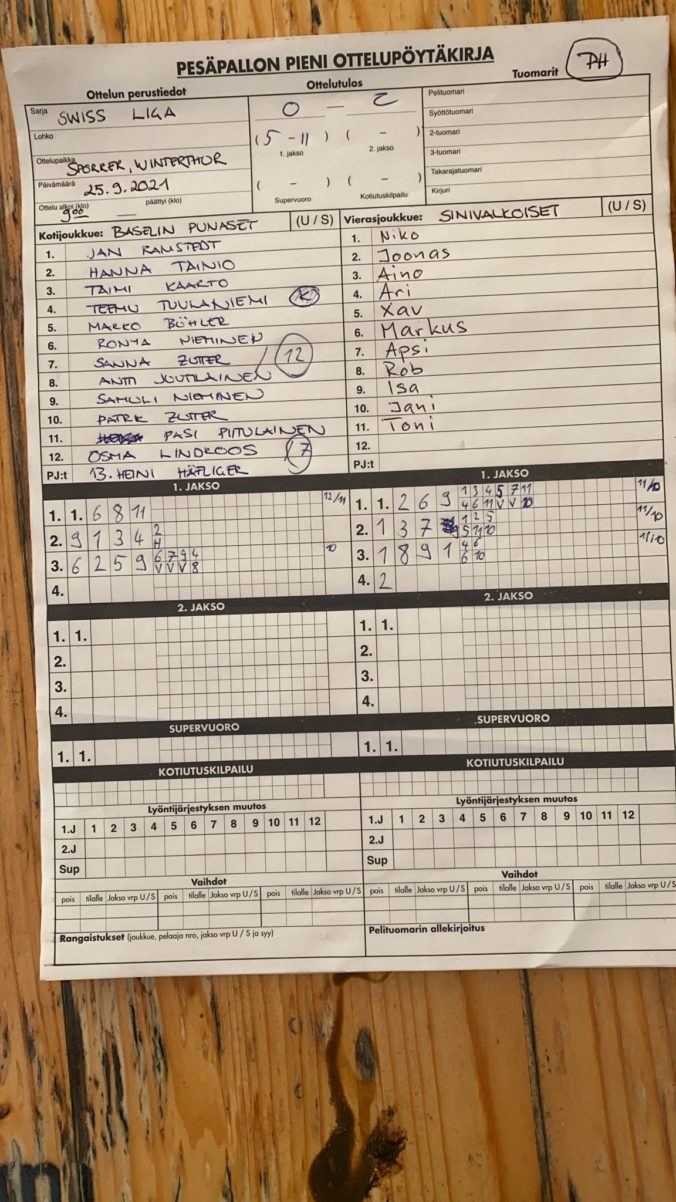 PESÄPALLON PIENI OTTELUPÖYTÄKIRJA
Ottelun perustiedot
Ottelutulos
Tuomarit
PH
Sarja SWISS LIGA
Lohko
Ottelupaikka SPORREK, WINTERTHUR
Päivämäärä 25.9.2021
Ottelu alkoi (klo) 9:00 päättyi (klo)
0 – 2
(5 - 11) ( - )
1. jakso 2. jakso
( - ) ( - )
Supervuoro Kotiutuskilpailu
Pelituomari
Syöttötuomari
2-tuomari
3-tuomari
Takarajatuomari
Kirjuri
Kotijoukkue: BASELIN PUNASET (U / S)
1. JAN RAMSTEDT
2. HANNA TAINIO
3. TAIMI KAARTO
4. TEEMU TUULANIEMI K
5. MARKO BÜHLER
6. RONYA NIEMINEN
7. SANNA ZUTTER 12
8. ANTTI JUUTILAINEN
9. SAMULI NIEMINEN
10. PATRIK ZUTTER
11. PASI PIITULAINEN
12. OSMA LINDROOS 7
PJ:t 13. HEINI HÄFLIGER
Vierasjoukkue: SINIVALKOISET (U / S)
1. Niko
2. Joonas
3. Aino
4. Ari
5. Xav
6. Markus
7. Apsi
8. Rob
9. Isa
10. Jani
11. Toni
12.
PJ:t
1. JAKSO
1. 1. 6 8 11 12/11
2. 9 1 3 4 2 H
3. 6 2 5 9 6 7 9 4 10
V V V 8
4.
1. JAKSO
1. 1. 2 6 9 1 3 4 5 7 11 11/10
4 6 11 V V 10
2. 1 3 7 1 2 5 11/10
9 5 11 10
3. 1 8 9 1 4 6 11/10
6 10
4. 2
2. JAKSO
1. 1.
2.
3.
4.
2. JAKSO
1. 1.
2.
3.
4.
SUPERVUORO
1. 1.
SUPERVUORO
1. 1.
KOTIUTUSKILPAILU
KOTIUTUSKILPAILU
Lyöntijärjestyksen muutos
1.J 1 2 3 4 5 6 7 8 9 10 11 12
2.J
Sup
Lyöntijärjestyksen muutos
1.J 1 2 3 4 5 6 7 8 9 10 11 12
2.J
Sup
Vaihdot
pois tilalle Jakso vrp U / S pois tilalle Jakso vrp U / S pois tilalle Jakso vrp U / S
Vaihdot
pois tilalle Jakso vrp U / S pois tilalle Jakso vrp U / S pois tilalle Jakso vrp U / S
Rangaistukset (joukkue, pelaaja nro, jakso vrp U / S ja syy)
Pelituomarin allekirjoitus